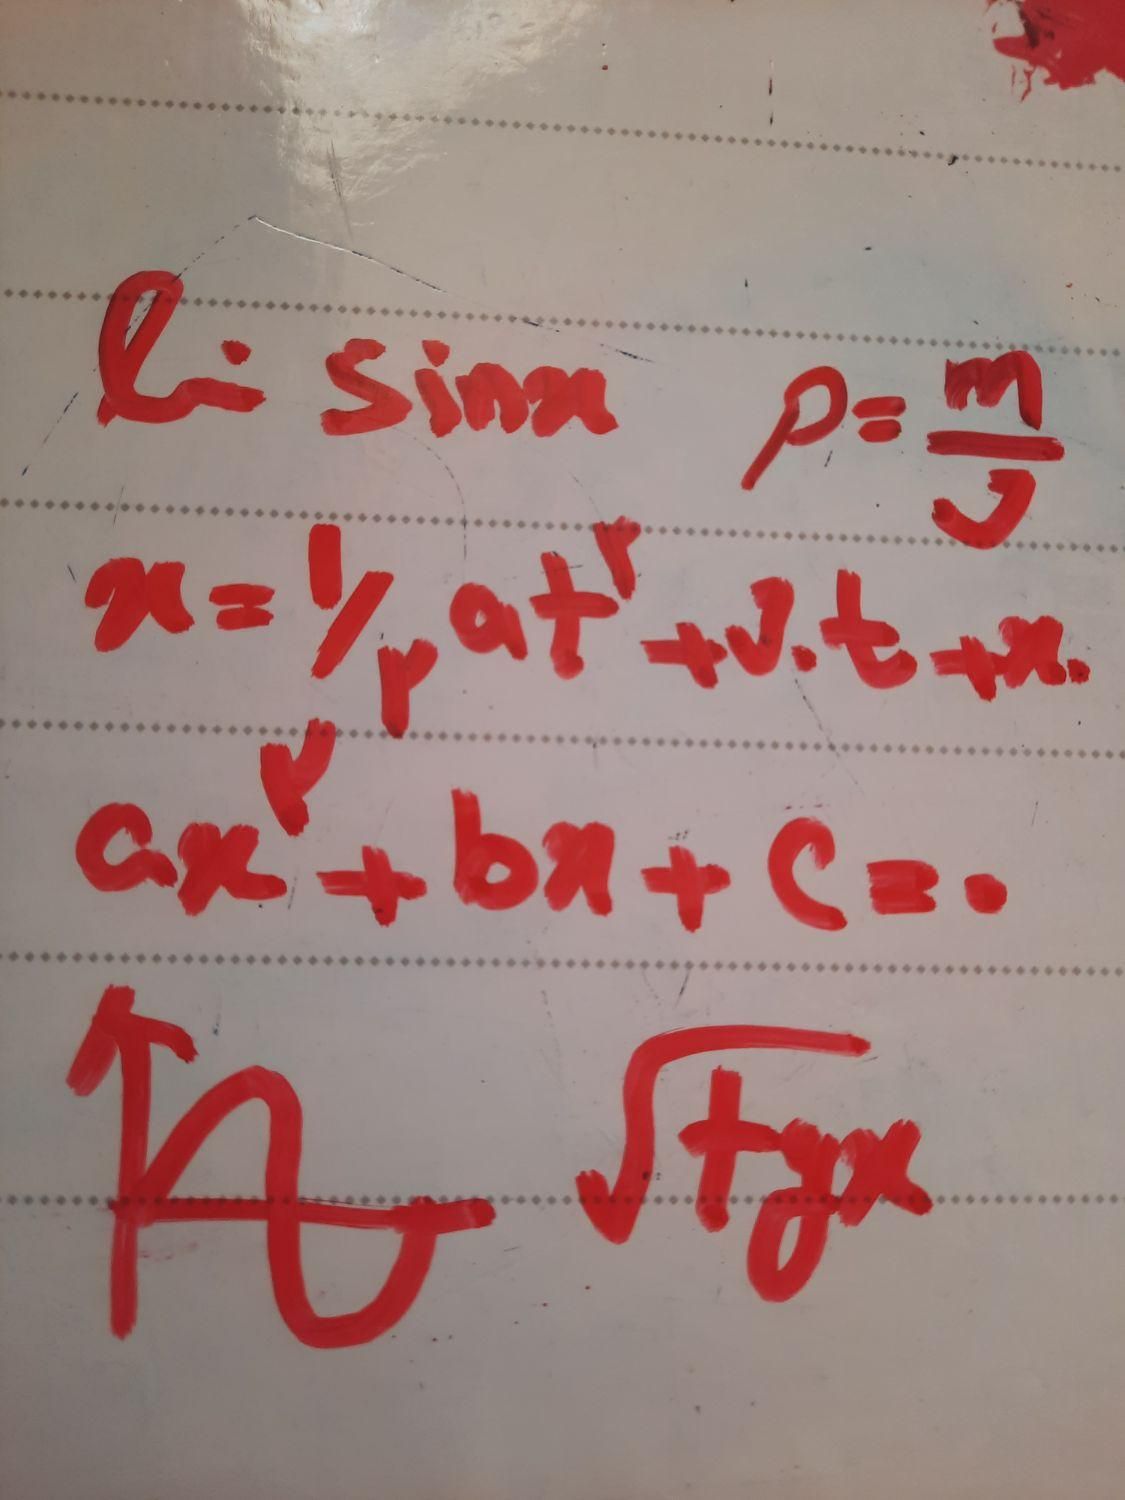 li sinx ρ=m/v
x=1/۲ at۲+v.t+x.
ax۲+bx+c=۰
√tgx